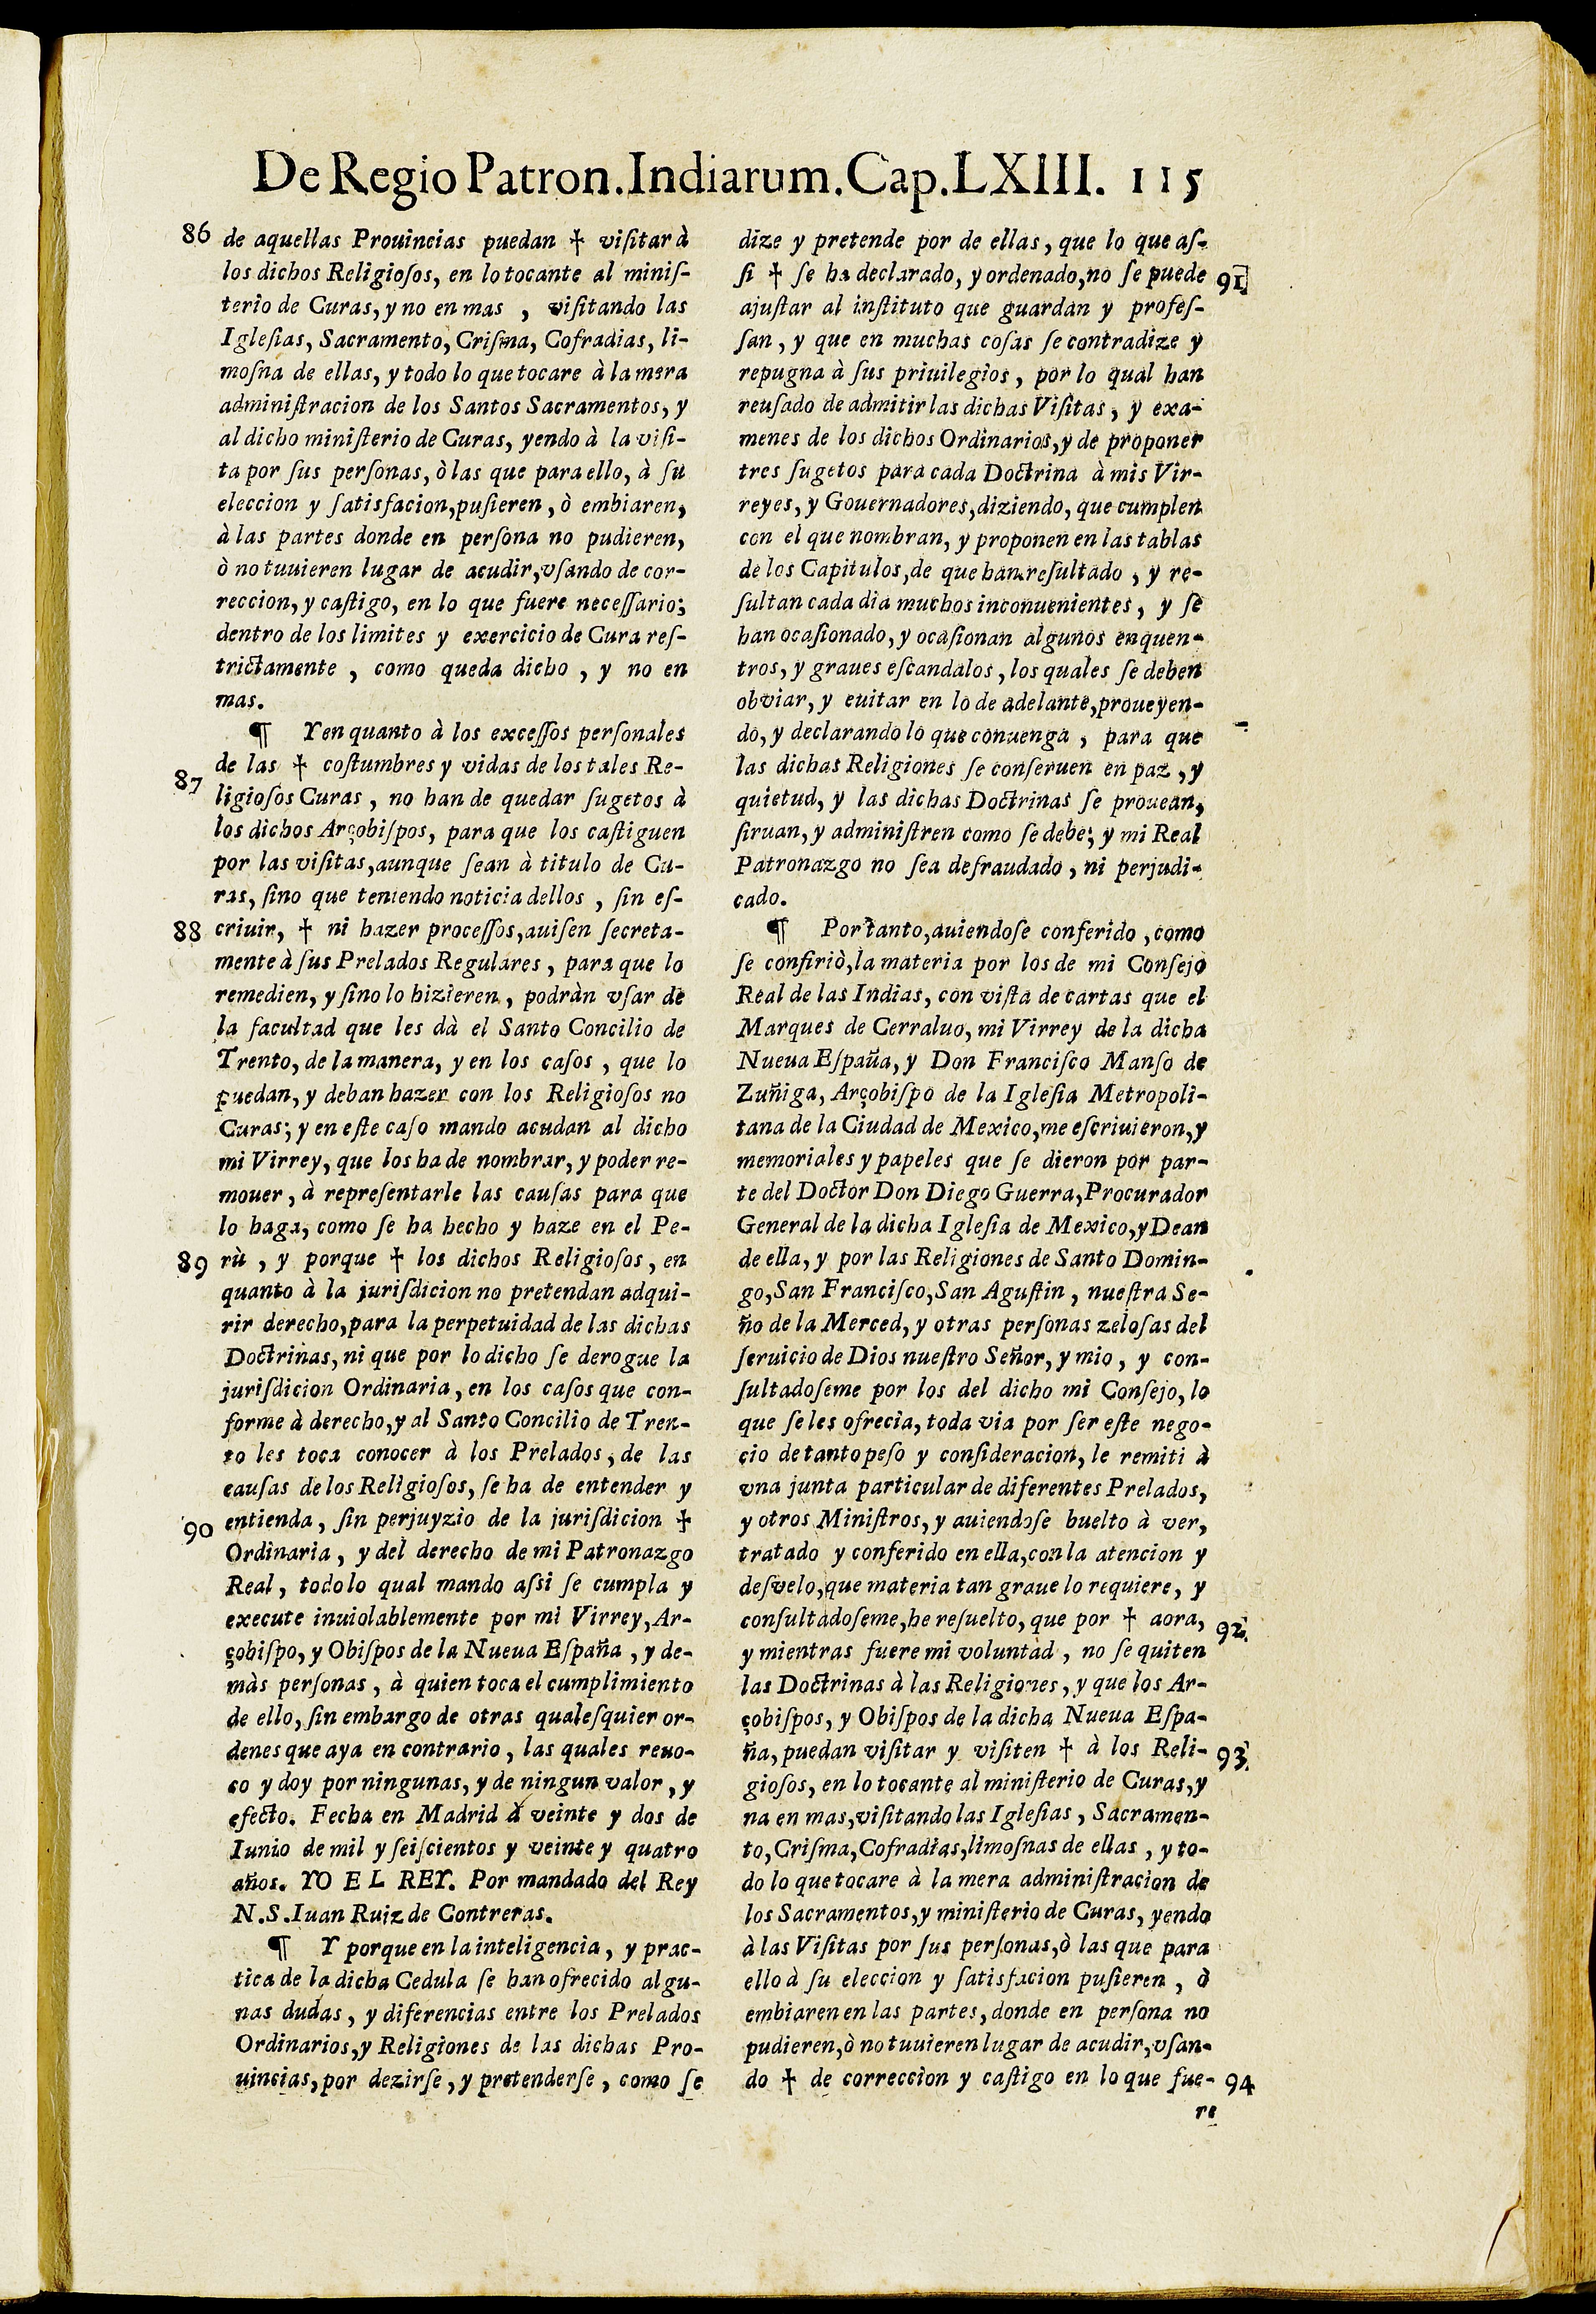 De Regio Patron. Indiarum. Cap. LXIII. 115
86 de aquellas Prouincias puedan † viſitar à
los dichos Religioſos, en lo tocante al miniſ-
terio de Curas, y no en mas , viſitando las
Igleſias, Sacramento, Criſma, Cofradias, li-
moſna de ellas, y todo lo que tocare à la mera
adminiſtracion de los Santos Sacramentos, y
al dicho miniſterio de Curas, yendo à la viſi-
ta por ſus perſonas, ò las que para ello, à ſu
eleccion y ſatisfacion, puſieren, ò embiaren,
à las partes donde en perſona no pudieren,
ò no tuuieren lugar de acudir, vſando de cor-
reccion, y caſtigo, en lo que fuere neceſſario;
dentro de los limites y exercicio de Cura reſ-
trictamente , como queda dicho , y no en
mas.
¶ Y en quanto à los exceſſos perſonales
87 de las † coſtumbres y vidas de los tales Re-
ligioſos Curas , no han de quedar ſugetos à
los dichos Arçobiſpos, para que los caſtiguen
por las viſitas, aunque ſean à titulo de Cu-
ras, ſino que teniendo noticia dellos , ſin eſ-
88 criuir, † ni hazer proceſſos, auiſen ſecreta-
mente à ſus Prelados Regulares, para que lo
remedien, y ſino lo hizieren, podràn vſar de
la facultad que les dà el Santo Concilio de
Trento, de la manera, y en los caſos , que lo
puedan, y deban hazer con los Religioſos no
Curas; y en eſte caſo mando acudan al dicho
mi Virrey, que los ha de nombrar, y poder re-
mouer, à repreſentarle las cauſas para que
lo haga, como ſe ha hecho y haze en el Pe-
89 rù , y porque † los dichos Religioſos, en
quanto à la juriſdicion no pretendan adqui-
rir derecho, para la perpetuidad de las dichas
Doctrinas, ni que por lo dicho ſe derogue la
juriſdicion Ordinaria, en los caſos que con-
forme à derecho, y al Santo Concilio de Tren-
to les toca conocer à los Prelados, de las
cauſas de los Religioſos, ſe ha de entender y
90 entienda, ſin perjuyzio de la juriſdicion †
Ordinaria, y del derecho de mi Patronazgo
Real, todo lo qual mando aſsi ſe cumpla y
execute inuiolablemente por mi Virrey, Ar-
çobiſpo, y Obiſpos de la Nueua Eſpaña , y de-
màs perſonas , à quien toca el cumplimiento
de ello, ſin embargo de otras qualeſquier or-
denes que aya en contrario, las quales reuo-
co y doy por ningunas, y de ningun valor, y
efecto. Fecha en Madrid à veinte y dos de
Iunio de mil y ſeiſcientos y veinte y quatro
años. YO EL REY. Por mandado del Rey
N.S. Iuan Ruiz de Contreras.
¶ Y porque en la inteligencia, y prac-
tica de la dicha Cedula ſe han ofrecido algu-
nas dudas, y diferencias entre los Prelados
Ordinarios, y Religiones de las dichas Pro-
uincias, por dezirſe, y pretenderſe, como ſe
dize y pretende por de ellas, que lo que aſ-
ſi † ſe ha declarado, y ordenado, no ſe puede 91
ajuſtar al inſtituto que guardan y profeſ-
ſan, y que en muchas coſas ſe contradize y
repugna à ſus priuilegios, por lo qual han
reuſado de admitir las dichas Viſitas, y exa-
menes de los dichos Ordinarios, y de proponer
tres ſugetos para cada Doctrina à mis Vir-
reyes, y Gouernadores, diziendo, que cumplen
con el que nombran, y proponen en las tablas
de los Capitulos, de que han reſultado , y re-
ſultan cada dia muchos inconuenientes, y ſe
han ocaſionado, y ocaſionan algunos enquen-
tros, y graues eſcandalos, los quales ſe deben
obviar, y euitar en lo de adelante, proueyen-
do, y declarando lo que conuenga , para que
las dichas Religiones ſe conſeruen en paz, y
quietud, y las dichas Doctrinas ſe prouean,
ſiruan, y adminiſtren como ſe debe; y mi Real
Patronazgo no ſea defraudado, ni perjudi-
cado.
¶ Por tanto, auiendoſe conferido, como
ſe confiriò, la materia por los de mi Conſejo
Real de las Indias, con viſta de cartas que el
Marques de Cerraluo, mi Virrey de la dicha
Nueua Eſpaña, y Don Franciſco Manſo de
Zuñiga, Arçobiſpo de la Igleſia Metropoli-
tana de la Ciudad de Mexico, me eſcriuieron, y
memoriales y papeles que ſe dieron por par-
te del Doctor Don Diego Guerra, Procurador
General de la dicha Igleſia de Mexico, y Dean
de ella, y por las Religiones de Santo Domin-
go, San Franciſco, San Aguſtin, nueſtra Se-
ño de la Merced, y otras perſonas zeloſas del
ſeruicio de Dios nueſtro Señor, y mio, y con-
ſultadoſeme por los del dicho mi Conſejo, lo
que ſe les ofrecia, toda via por ſer eſte nego-
cio de tanto peſo y conſideracion, le remiti à
vna junta particular de diferentes Prelados,
y otros Miniſtros, y auiendoſe buelto à ver,
tratado y conferido en ella, con la atencion y
deſvelo, que materia tan graue lo requiere, y
conſultadoſeme, he reſuelto, que por † aora, 92
y mientras fuere mi voluntad, no ſe quiten
las Doctrinas à las Religiones, y que los Ar-
çobiſpos, y Obiſpos de la dicha Nueua Eſpa-
ña, puedan viſitar y viſiten † à los Reli- 93
gioſos, en lo tocante al miniſterio de Curas, y
na en mas, viſitando las Igleſias, Sacramen-
to, Criſma, Cofradias, limoſnas de ellas, y to-
do lo que tocare à la mera adminiſtracion de
los Sacramentos, y miniſterio de Curas, yendo
à las Viſitas por ſus perſonas, ò las que para
ello à ſu eleccion y ſatisfacion puſieren, ò
embiaren en las partes, donde en perſona no
pudieren, ò no tuuieren lugar de acudir, vſan-
do † de correccion y caſtigo en lo que fue- 94
re